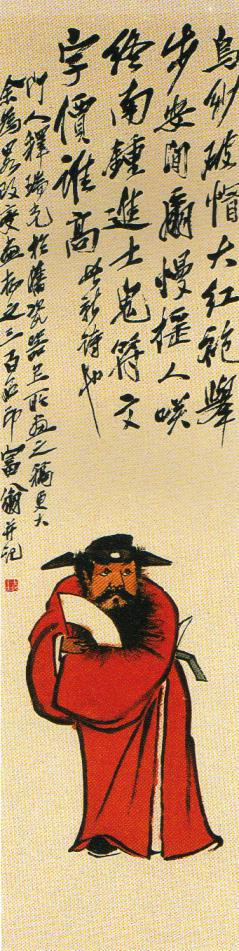 烏紗破帽大紅袍舉
步安閒扇慢搖人笑
終南鍾進士鬼符文
字價誰高 此新詩也
門人釋瑞光於舊瓷器上所畫之稿更大
余為畧改變畫存之三百石印富翁并記